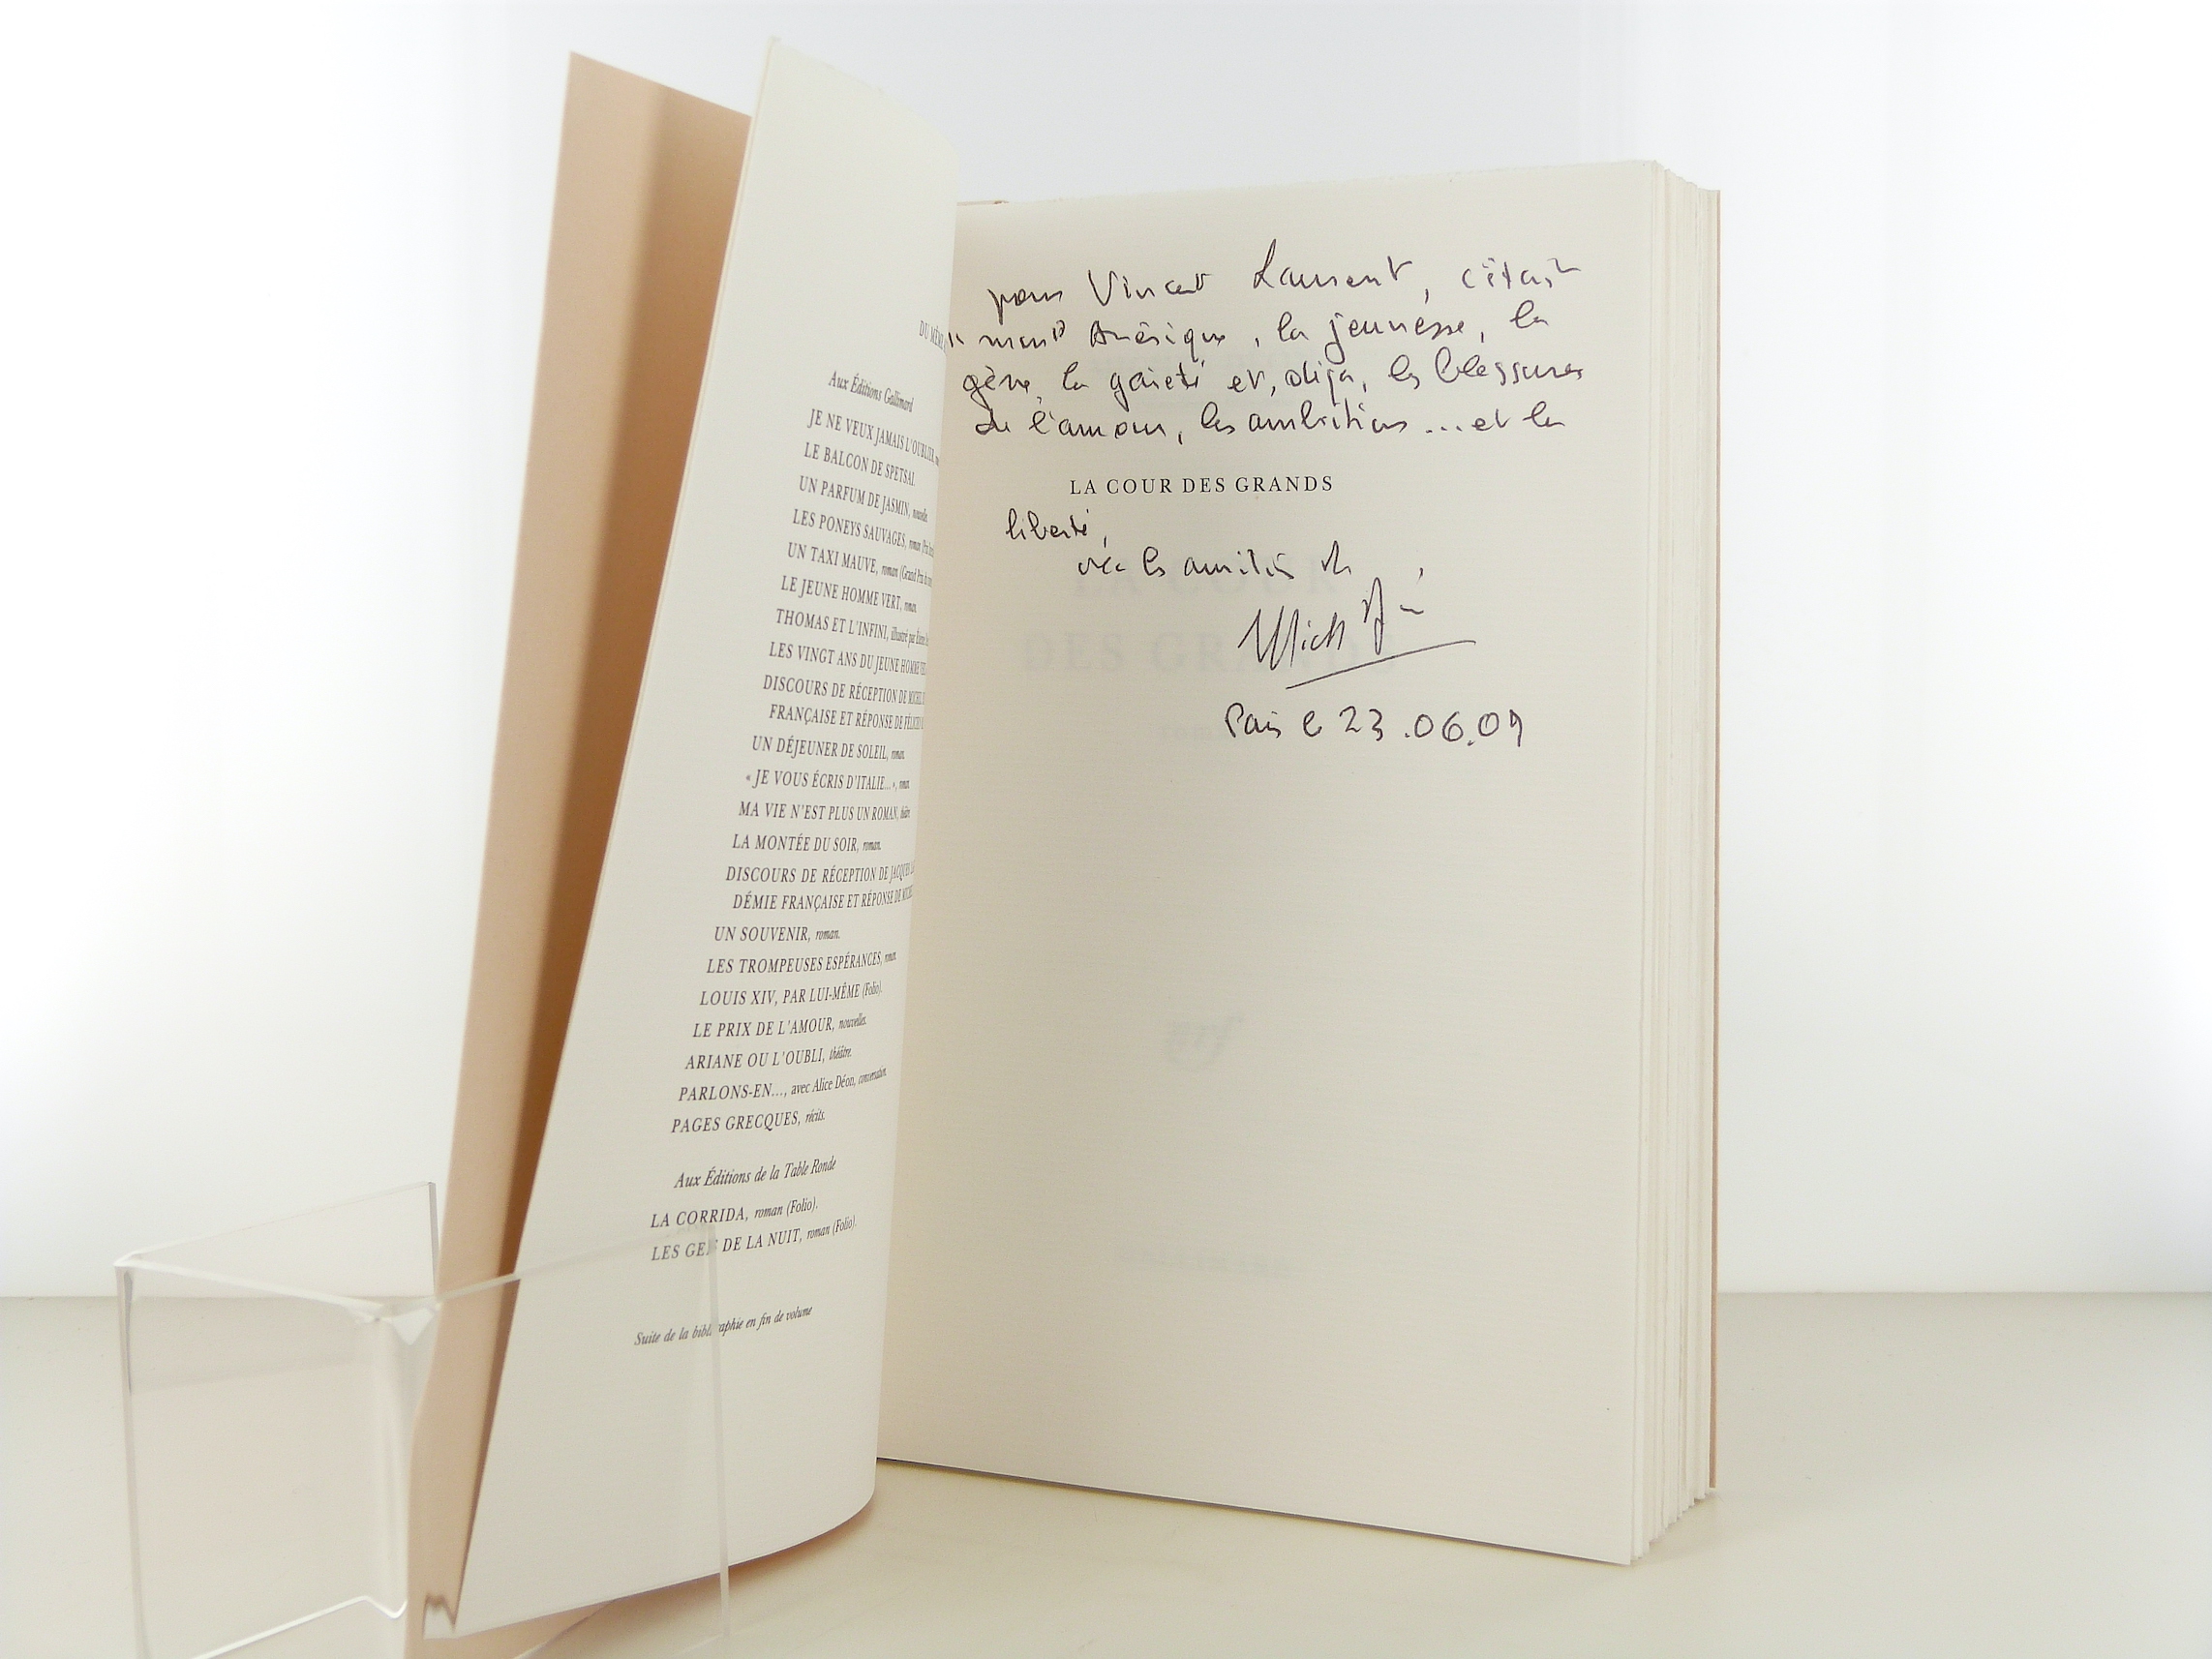 DU MÊME
Aux Éditions Gallimard
JE NE VEUX JAMAIS L'OUBLIER
LE BALCON DE SPETSAI.
UN PARFUM DE JASMIN, nouvelles.
LES PONEYS SAUVAGES, roman (Prix
UN TAXI MAUVE, roman (Grand Prix du
LE JEUNE HOMME VERT, roman.
THOMAS ET L'INFINI, illustré par
LES VINGT ANS DU JEUNE HOMME
DISCOURS DE RÉCEPTION DE MICHEL
FRANÇAISE ET RÉPONSE DE FÉLICIEN
UN DÉJEUNER DE SOLEIL, roman.
« JE VOUS ÉCRIS D'ITALIE... », roman.
MA VIE N'EST PLUS UN ROMAN, théâtre.
LA MONTÉE DU SOIR, roman.
DISCOURS DE RÉCEPTION DE JACQUES
DÉMIE FRANÇAISE ET RÉPONSE DE
UN SOUVENIR, roman.
LES TROMPEUSES ESPÉRANCES, roman.
LOUIS XIV, PAR LUI-MÊME (Folio).
LE PRIX DE L'AMOUR, nouvelles.
ARIANE OU L'OUBLI, théâtre.
PARLONS-EN..., avec Alice Déon, conversation.
PAGES GRECQUES, récits.
Aux Éditions de la Table Ronde
LA CORRIDA, roman (Folio).
LES GENS DE LA NUIT, roman (Folio).
Suite de la bibliographie en fin de volume
pour Vincent Laurent, c'était
Amérique, la jeunesse, la
gêne, la gaieté et, déjà, les blessures
de l'amour, les ambitions ... et la
LA COUR DES GRANDS
liberté,
avec les amitiés de
Michel Déon
Paris le 23.06.09
LA COUR
DES GRANDS
roman
nrf